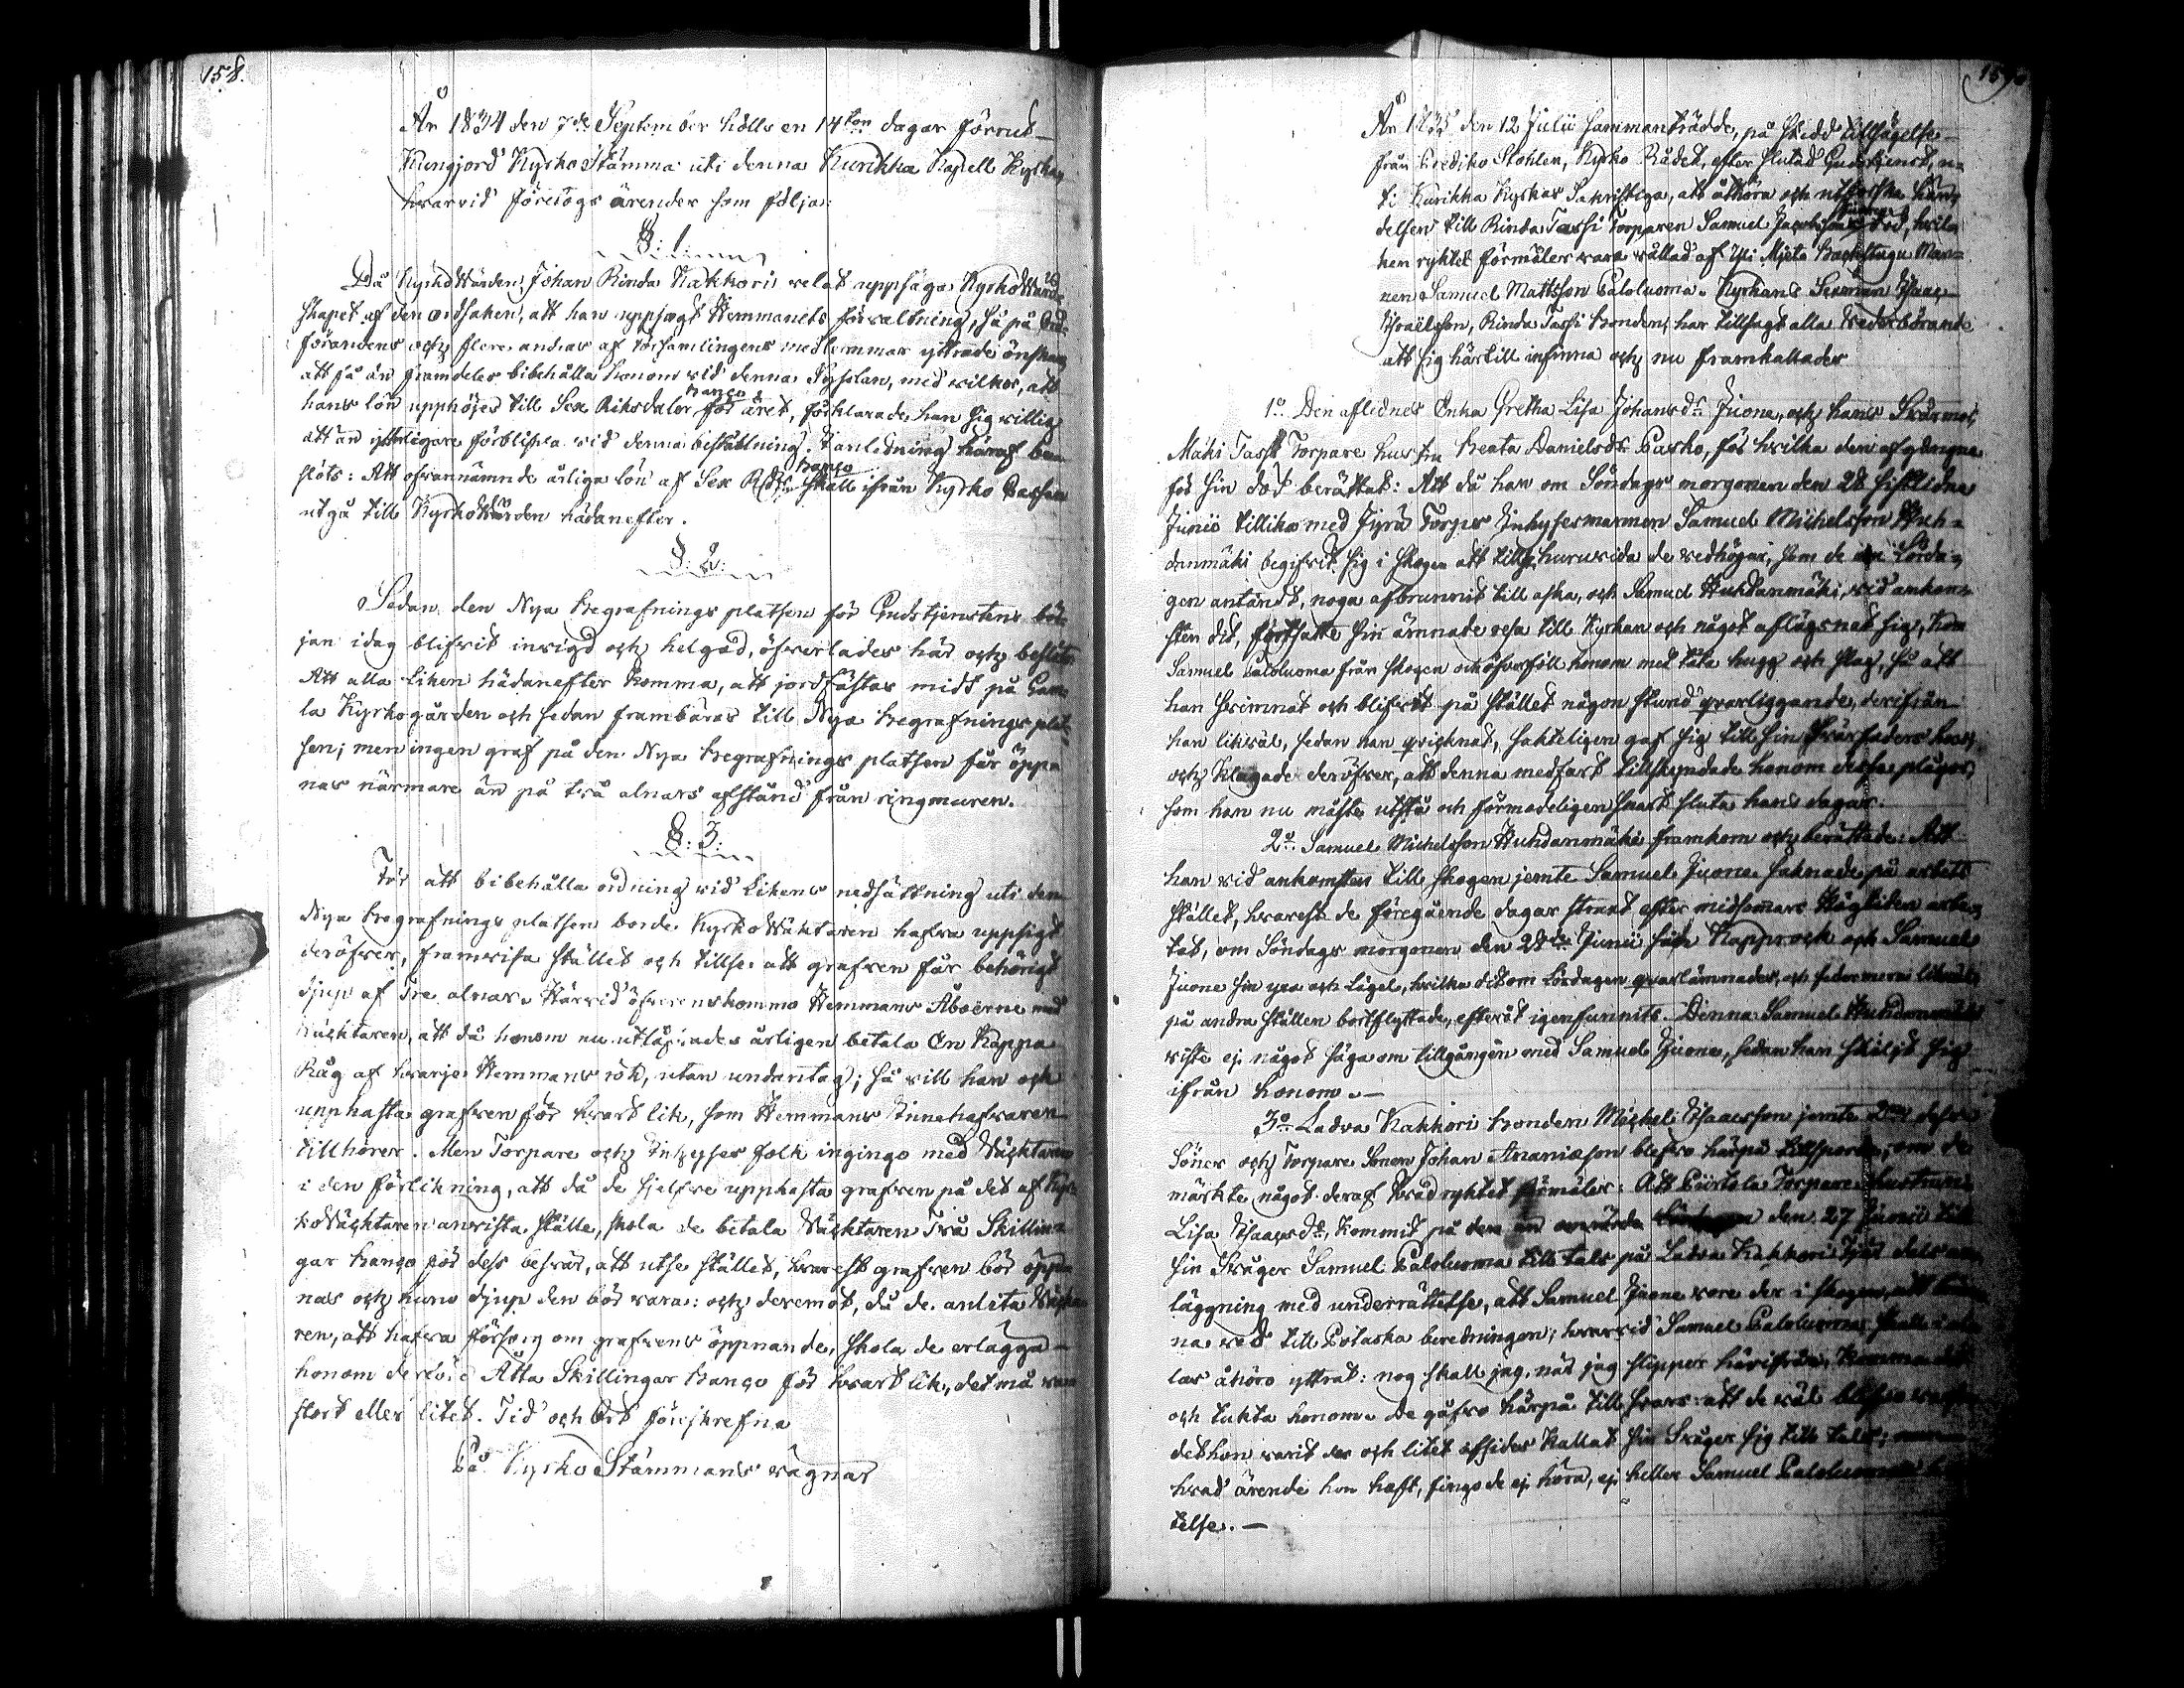 158.
År 1834 den 7de September hölls en 14ton dagar förrut
Kungjord KyrkoStämma uti denna Kurikka Kapell Kyrka,
hvarvid företogs ärender som följa:
§: 1:
Då KyrkoWärden, Johan Rinda Kakkori velat uppsäga KyrkoWärd-
skapet af den orsaken, att han uppsagt Hemmanets förvaltning, så på Ord-
förandens och flere andras af Församlingens medlemmar yttrade önskan
att få än framdeles bibehålla honom vid denna Sysslan, med vilkor, att
hans lön upphöjes till Sex Riksdaler Banco för året, förklarade han sig villig
att än ytterligare förblifva vid denna beställning. I anledning häraf be-
slöts: Att ofvannämnde årliga lön af Sex Rdr Banco skall ifrån Kyrko Cassan
utgå till KyrkoWärden hädanefter.
§: 2:
Sedan den Nya Begrafnings platsen för Gudstjenstens bör-
jan idag blifvit invigd och helgad, öfverlades här och beslöts
Att alla Liken hädanefter komma, att jordfästas midt på Gam-
la Kyrkogården och sedan frambäras till Nya Begrafnings plat-
sen; men ingen graf på den Nya Begrafnings platsen får öppn
nas närmare än på två alnars afstånd från ringmuren.
§: 3:
För att bibehålla ordning vid Likens nedsättning uti den
Nya Begrafnings platsen borde KyrkoWäktaren hafva uppsigt
deröfver, framvisa stället och tillse att grafven får behörigt
djup af Tre alnar. Härvid öfverenskommo Hemmans Åboerne med
Wäcktaren, att då honom nu utlåfvades årligen betala En Kappa
Råg af hvarje Hemmans rök, utan undantag; så vill han ock
upphasta grafven för hvart lik, som Hemmans Innehafvaren
tillhörer. Men Torpare och Inhyses folk ingingo med Wäcktaren
i den förlikning, att då de sjelfve upphasta grafven på det af Kyr-
koWäcktaren anvista ställe, skola de betala Wäcktaren Två Skillin-
gar Banco för dess besvär, att utse stället, hvarest grafven bör öppn
nas och huru djup den bör vara: och deremot, då de anlita Wäckta-
ren, att hafva försorg om grafvens öppnande, skola de erlägga
honom derföre Åtta Skillingar Banco för hvart lik, det må vara
stort eller litet. Tid och Ort förrskrefna
På Kyrko Stämmans vägnar
159.
År 1835 den 12 Julii sammanträdde, på skedd tillsägelse
från Prediko Stohlen, Kyrko Rådet, efter slutad Gudstjenst, u-
ti Kurikka Kyrkas Sakristiga, att åthöra och utforska hän-
delsen till Rinda Tassi Torparen Samuel Jacobsson Juones död, hvil-
ken ryktet förmäler vara vållad af Yli Myeto Backstugu Man-
nen Samuel Mattsson Paloluoma. Kyrkans Sexman Isaac
Israëlsson, Rinda Tassi Bonden, har tillsagt alla Wederbörande
att sig härtill infinna och nu framkallades
1o Den aflidnes Enka Gretha Lisa Johansdr Juone, och hans Svärmor,
Mäki Tassi Torpare hustru Beata Danielsdr Pasko, för hvilka den afgångne
för sin död berättat: Att då han om Söndags morgonen den 28 sistlidne
Junii tillika med Jyrä Torpes Inhysesmannen Samuel Michelsson Huh-
danmäki begifvit sig i skogen att tillse, huruvida de vedhögar, som de om Lörda-
gen antändt, noga afbrunnit till aska, och Samuel Huhdanmäki, vid ankom-
sten dit, fortsatte sin ämnade resa till Kyrkan och något aflägsnat sig, kom
Samuel Paloluoma från skogen och öfverföll honom med täta hugg och slag, så att
han svimnat och blifvit på stället någon stund qvarliggande, derifrån
han likväl, sedan han qvicknat, sakteligen gaf sig till sin Svärfaders hus,
och klagade deröfver, att denna medfart tillskyndade honom dessa plågor,
som han nu måste utstå och förmodeligen snart sluta hans dagar.
2o Samuel Michelsson Huhdanmäki framkom och berättade: Att
han vid ankomsten till skogen jemte Samuel Juone saknade på arbets
stället, hvarest de föregående dagar straxt efter midsommars Helgtiden arbe-
tat, om Söndags morgonen den 28de Junii sin Kapprock och Samuel
Juone sin yxa och Lägel, hvilka dit om Lördagen qvarlämnades, och sedermera
på andra ställen bortflyttade, efteråt igenfunnits. Denna Samuel Huhdanmäki
viste ej något säga om tillgången med Samuel Juone, sedan han skiljt sig
ifrån honom.—
3o Ladva Kakkori Bonden Michel Isaacsson jemte dess
Söner och Torpare Sonen Johan Ananiæson blefvo härpå tillsporde, om de
märkte något deraf hvad ryktet förmäler: Att Pirtola Torpare hustrun
Lisa Isaacsdr kommit på den den 27 Junii till
sin Svåger Samuel Paloluoma till tals på Ladva Kakkori
läggning med underrättelse, att Samuel Juone vore der i skogen, att
na ved till Potaska beredningen; hvarvid Samuel Paloluoma skall i al-
las åhöro yttrat: nog skall jag, när jag slipper härifrån, komma dit
och tukta honom. De gåfvo härpå till svar: att de väl blefvo varse
det hon varit der och litet afsides kallat sin Svåger sig till tals; men
hvad ärende hon haft, fingo de ej höra, ej heller Samuel Paloluomas
telse.—